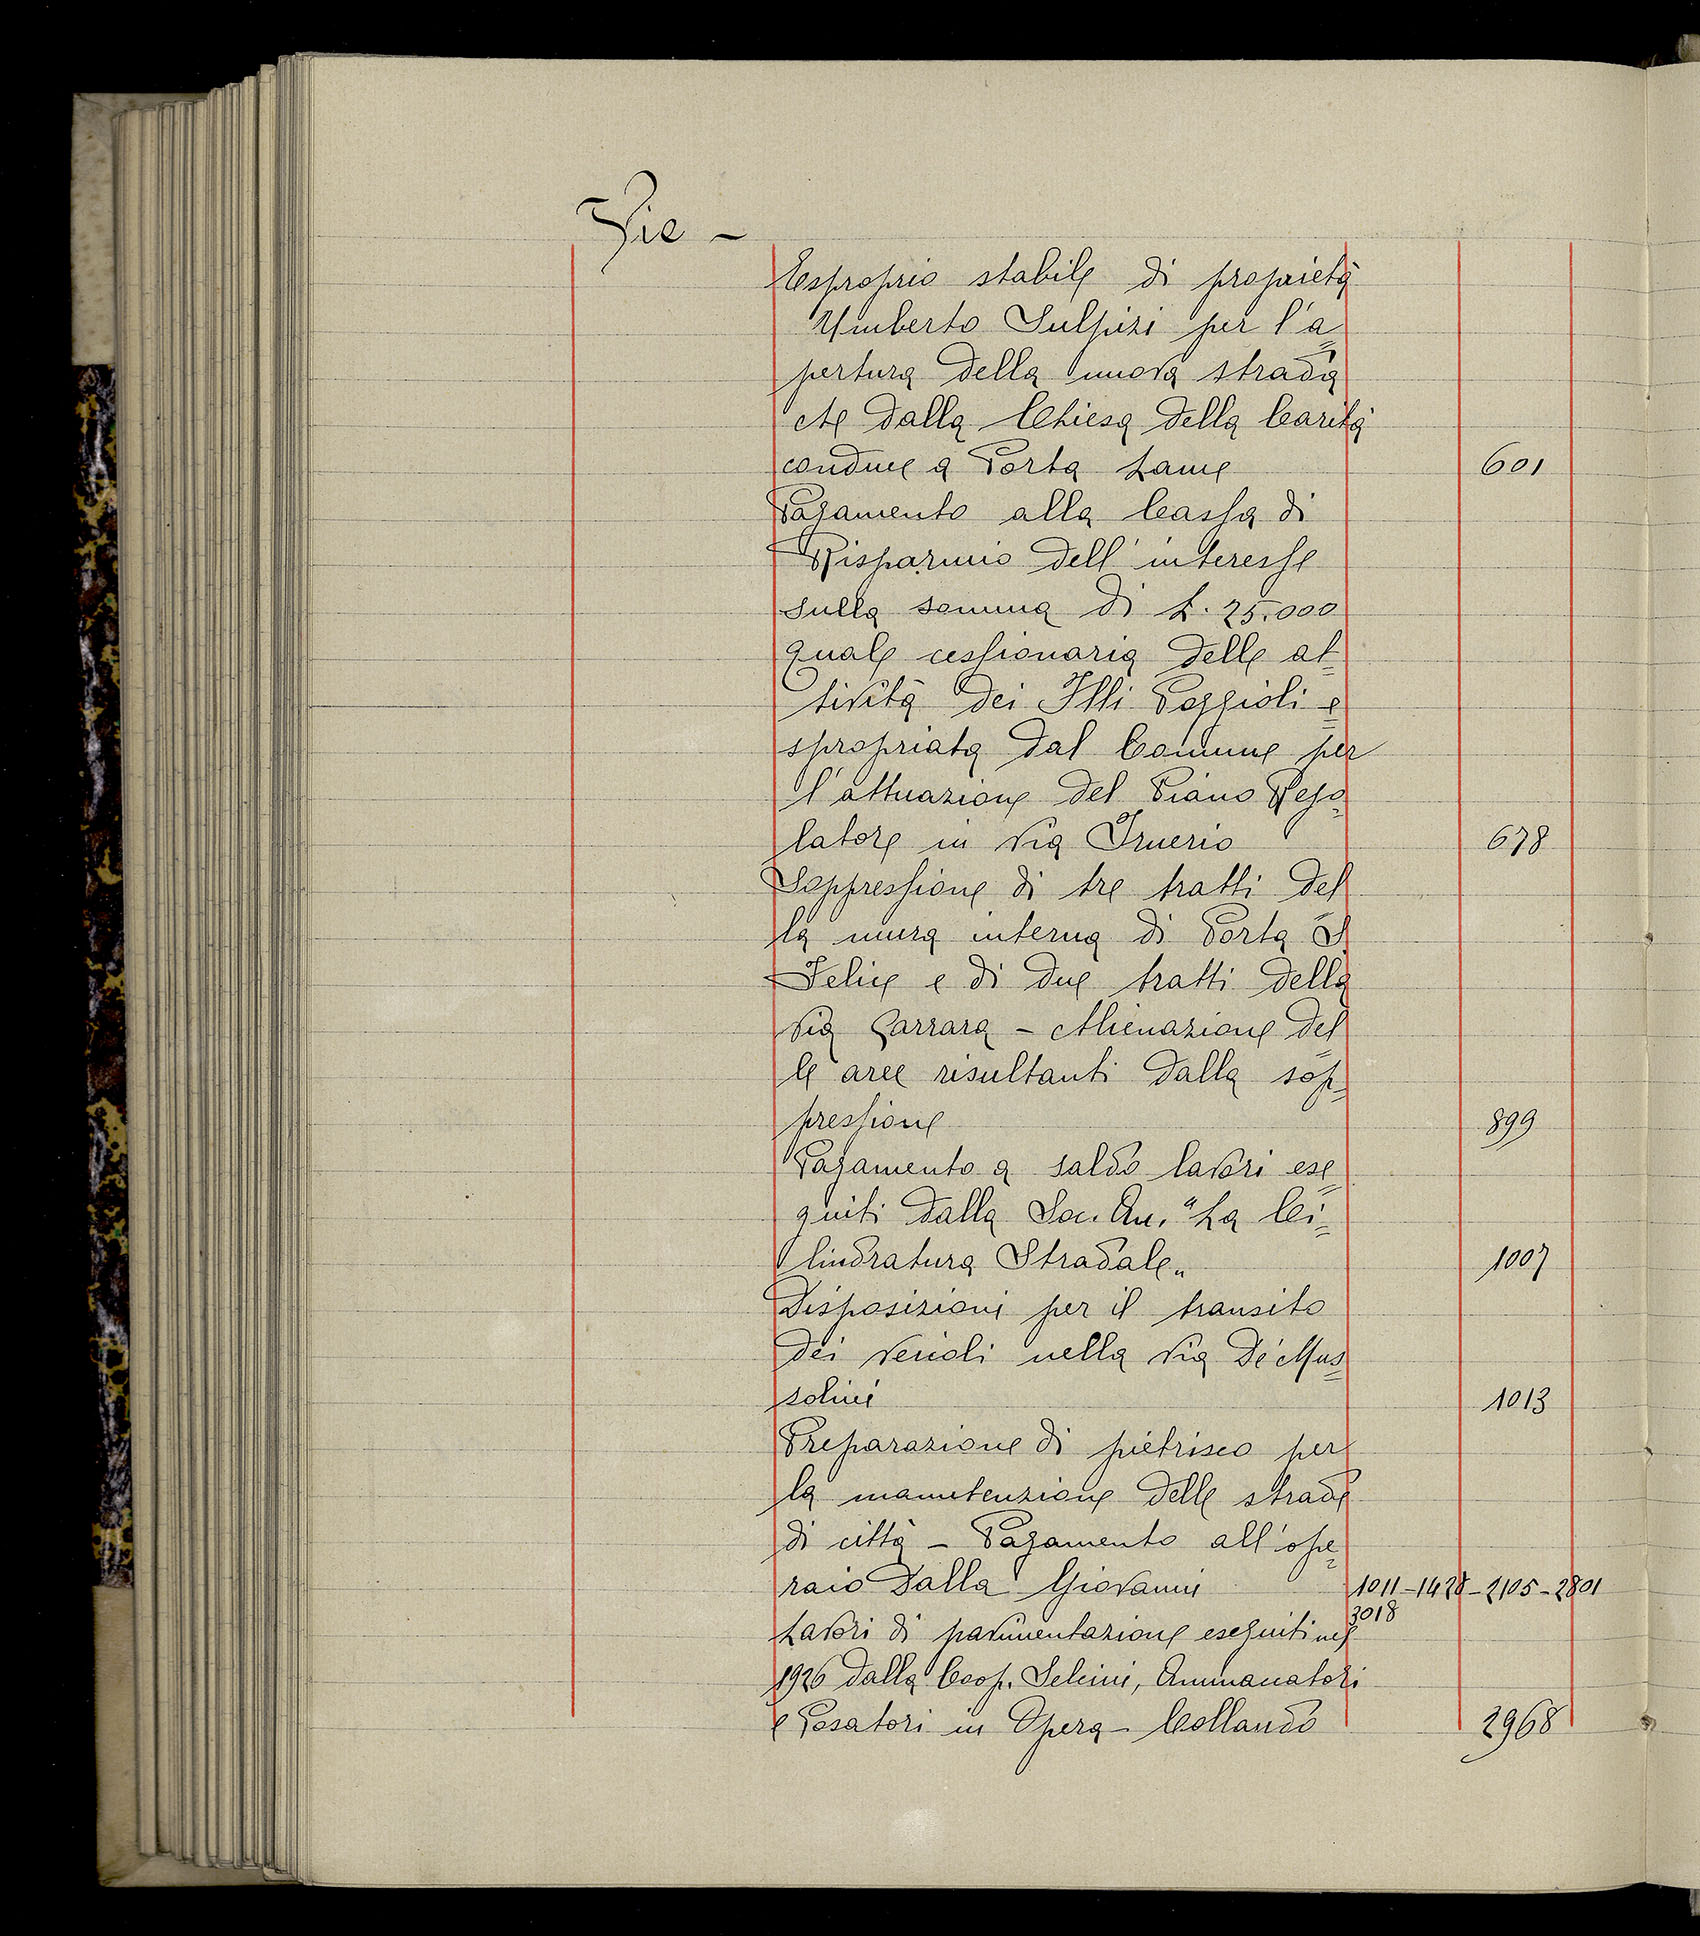 Vie -
Esproprio stabile di proprietà
Umberto Sulpizi per l'a=
pertura della nuova strada
che dalla Chiesa della Carità
conduce a Porta Lame 601
Pagamento alla Cassa di
Risparmio dell'interesse
sulla somma di L. 25.000
quale cessionaria delle at=
tività dei F.lli Poggioli e=
spropriata dal Comune per
l'attuazione del Piano Rego=
latore in Via Irnerio 678
Soppressione di tre tratti del=
la mura interna di Porta S.
Felice e di due tratti della
Via Carrara - Alienazione del=
le aree risultanti dalla sop=
pressione 899
Pagamento a saldo lavori ese=
guiti dalla Soc. An. "La Ci=
lindratura Stradale„ 1007
Disposizioni per il transito
dei veicoli nella Via De' Mus=
solini 1013
Preparazione di pietrisco per
la manutenzione delle strade
di città - Pagamento all'ope=
raio Dalla Giovanni 1011-1428-2105-2801
3018
Lavori di pavimentazione eseguiti nel
1926 dalla Coop. Selcini, Ammanatori
e Posatori in Opera - Collaudo 2968